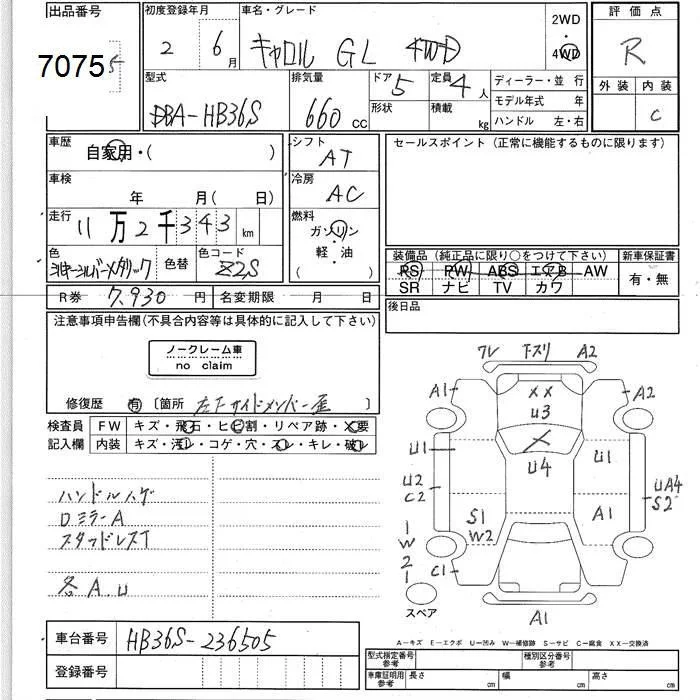 出品番号
7075
初度登録年月
2 6月
車名・グレード
キャロル GL 4WD
2WD
4WD
評価点
R
外装 内装
C
型式
DBA-HB36S
排気量
660 cc
ドア 5
形状
定員 4人
積載 kg
ディーラー・並行
モデル年式 年
ハンドル 左・右
車歴
自家用・( )
シフト
AT
セールスポイント (正常に機能するものに限ります)
車検
年 月( 日)
冷房
AC
走行
11万2千343 km
燃料
ガソリン
・
軽・油
( )
色
シルキーシルバーメタリック
色替
色コード
Z2S
装備品 (純正品に限り○をつけて下さい)
新車保証書
PS PW ABS エアB AW
SR ナビ TV カワ
有・無
R券 7,930 円
名変期限 月 日
後日品
注意事項申告欄(不具合内容等は具体的に記入して下さい)
ノークレーム車
no claim
修復歴 有 〔箇所 左下サイドメンバー歪 〕
検査員
記入欄
FW キズ・飛石・ヒビ割・リペア跡・X要
内装 キズ・汚レ・コゲ・穴・スレ・キレ・破レ
ハンドルハゲ
Dミラー A
スタッドレスT
各A.U
ワレ 下スリ A2
A1 XX A2
U3
U1 U4 U1
U2
C2
UA4
S2
S1
W2
A1
1
W
2
1
C1
スペア
A1
A−キズ E−エクボ U−凹み W−補修跡 S−サビ C−腐食 XX−交換済
車台番号 HB36S-236505
登録番号
型式指定番号
参考
種別区分番号
参考
車庫証明用
参考
長さ cm 幅 cm 高さ cm